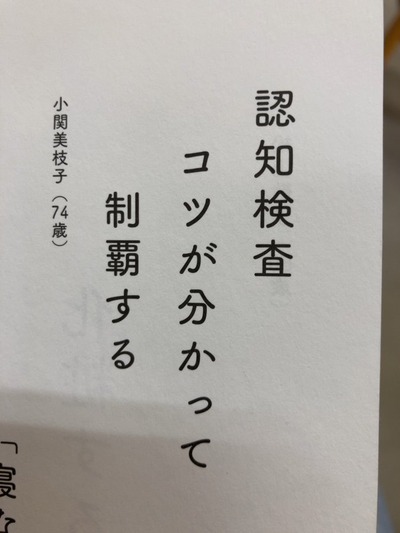 認知検査
コツが分かって
制覇する
小関美枝子（74歳）
「寝